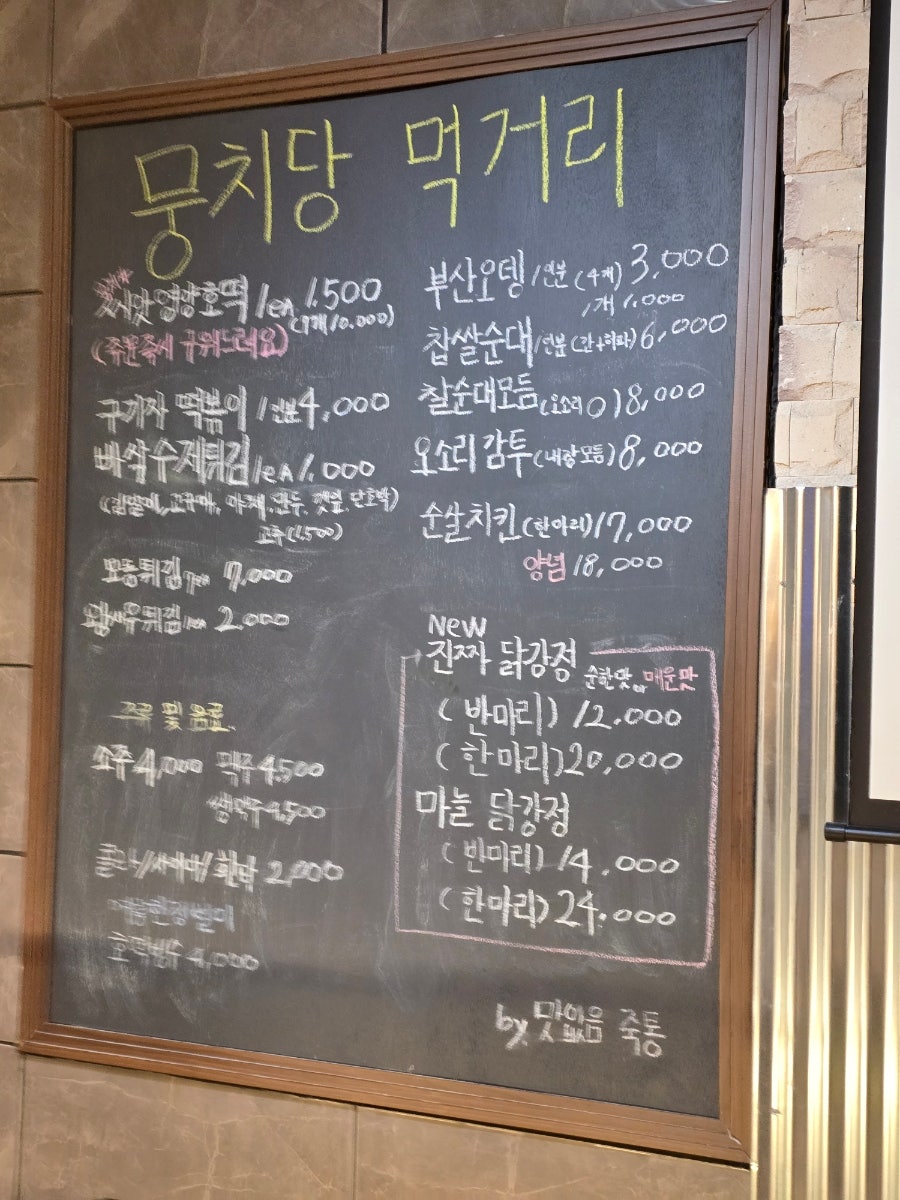 뭉치당 먹거리
씨앗 영양호떡 1ea 1.500
(7개 10.000)
(주문즉시 구워드려요)
구기자 떡볶이 1인분 4,000
바삭 수제튀김 1EA 1.000
(김말이, 고구마, 야채. 만두. 깻잎. 단호박)
고추(1.500)
모둠튀김 7,000
왕새우튀김 2.000
주류 및 음료
소주 4,000 맥주 4,500
생맥주 4,500
콜라/사이다/환타 2,000
여름한정별미
호떡빙수 4,000
부산오뎅 1인분 (4개) 3,000
1개 1.000
찹쌀순대 1인분 (간+허파) 6,000
찰순대모듬 (오소리O) 8,000
오소리감투 (내장모듬) 8,000
순살치킨 (한마리) 17,000
양념 18,000
NEW
진짜 닭강정 순한맛 or 매운맛
(반마리) 12.000
(한마리) 20,000
마늘 닭강정
(반마리) 14.000
(한마리) 24.000
by 맛없음 죽통